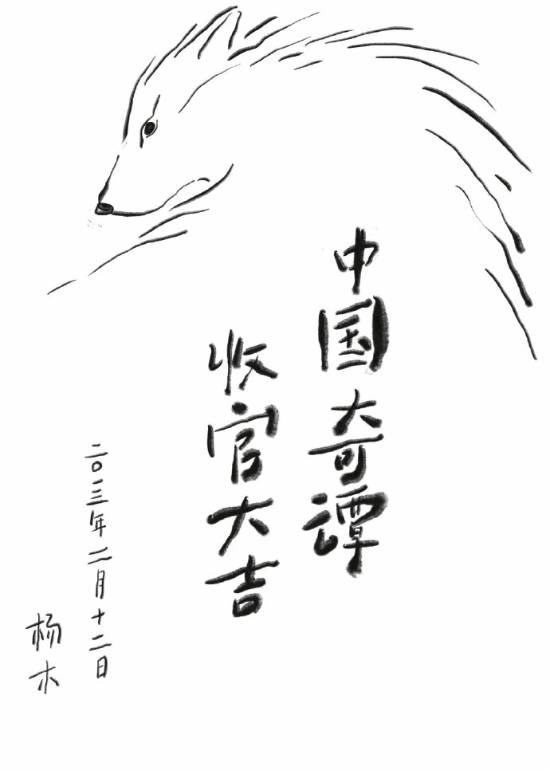 中国奇谭
收官大吉
二〇二三年二月十二日
杨木